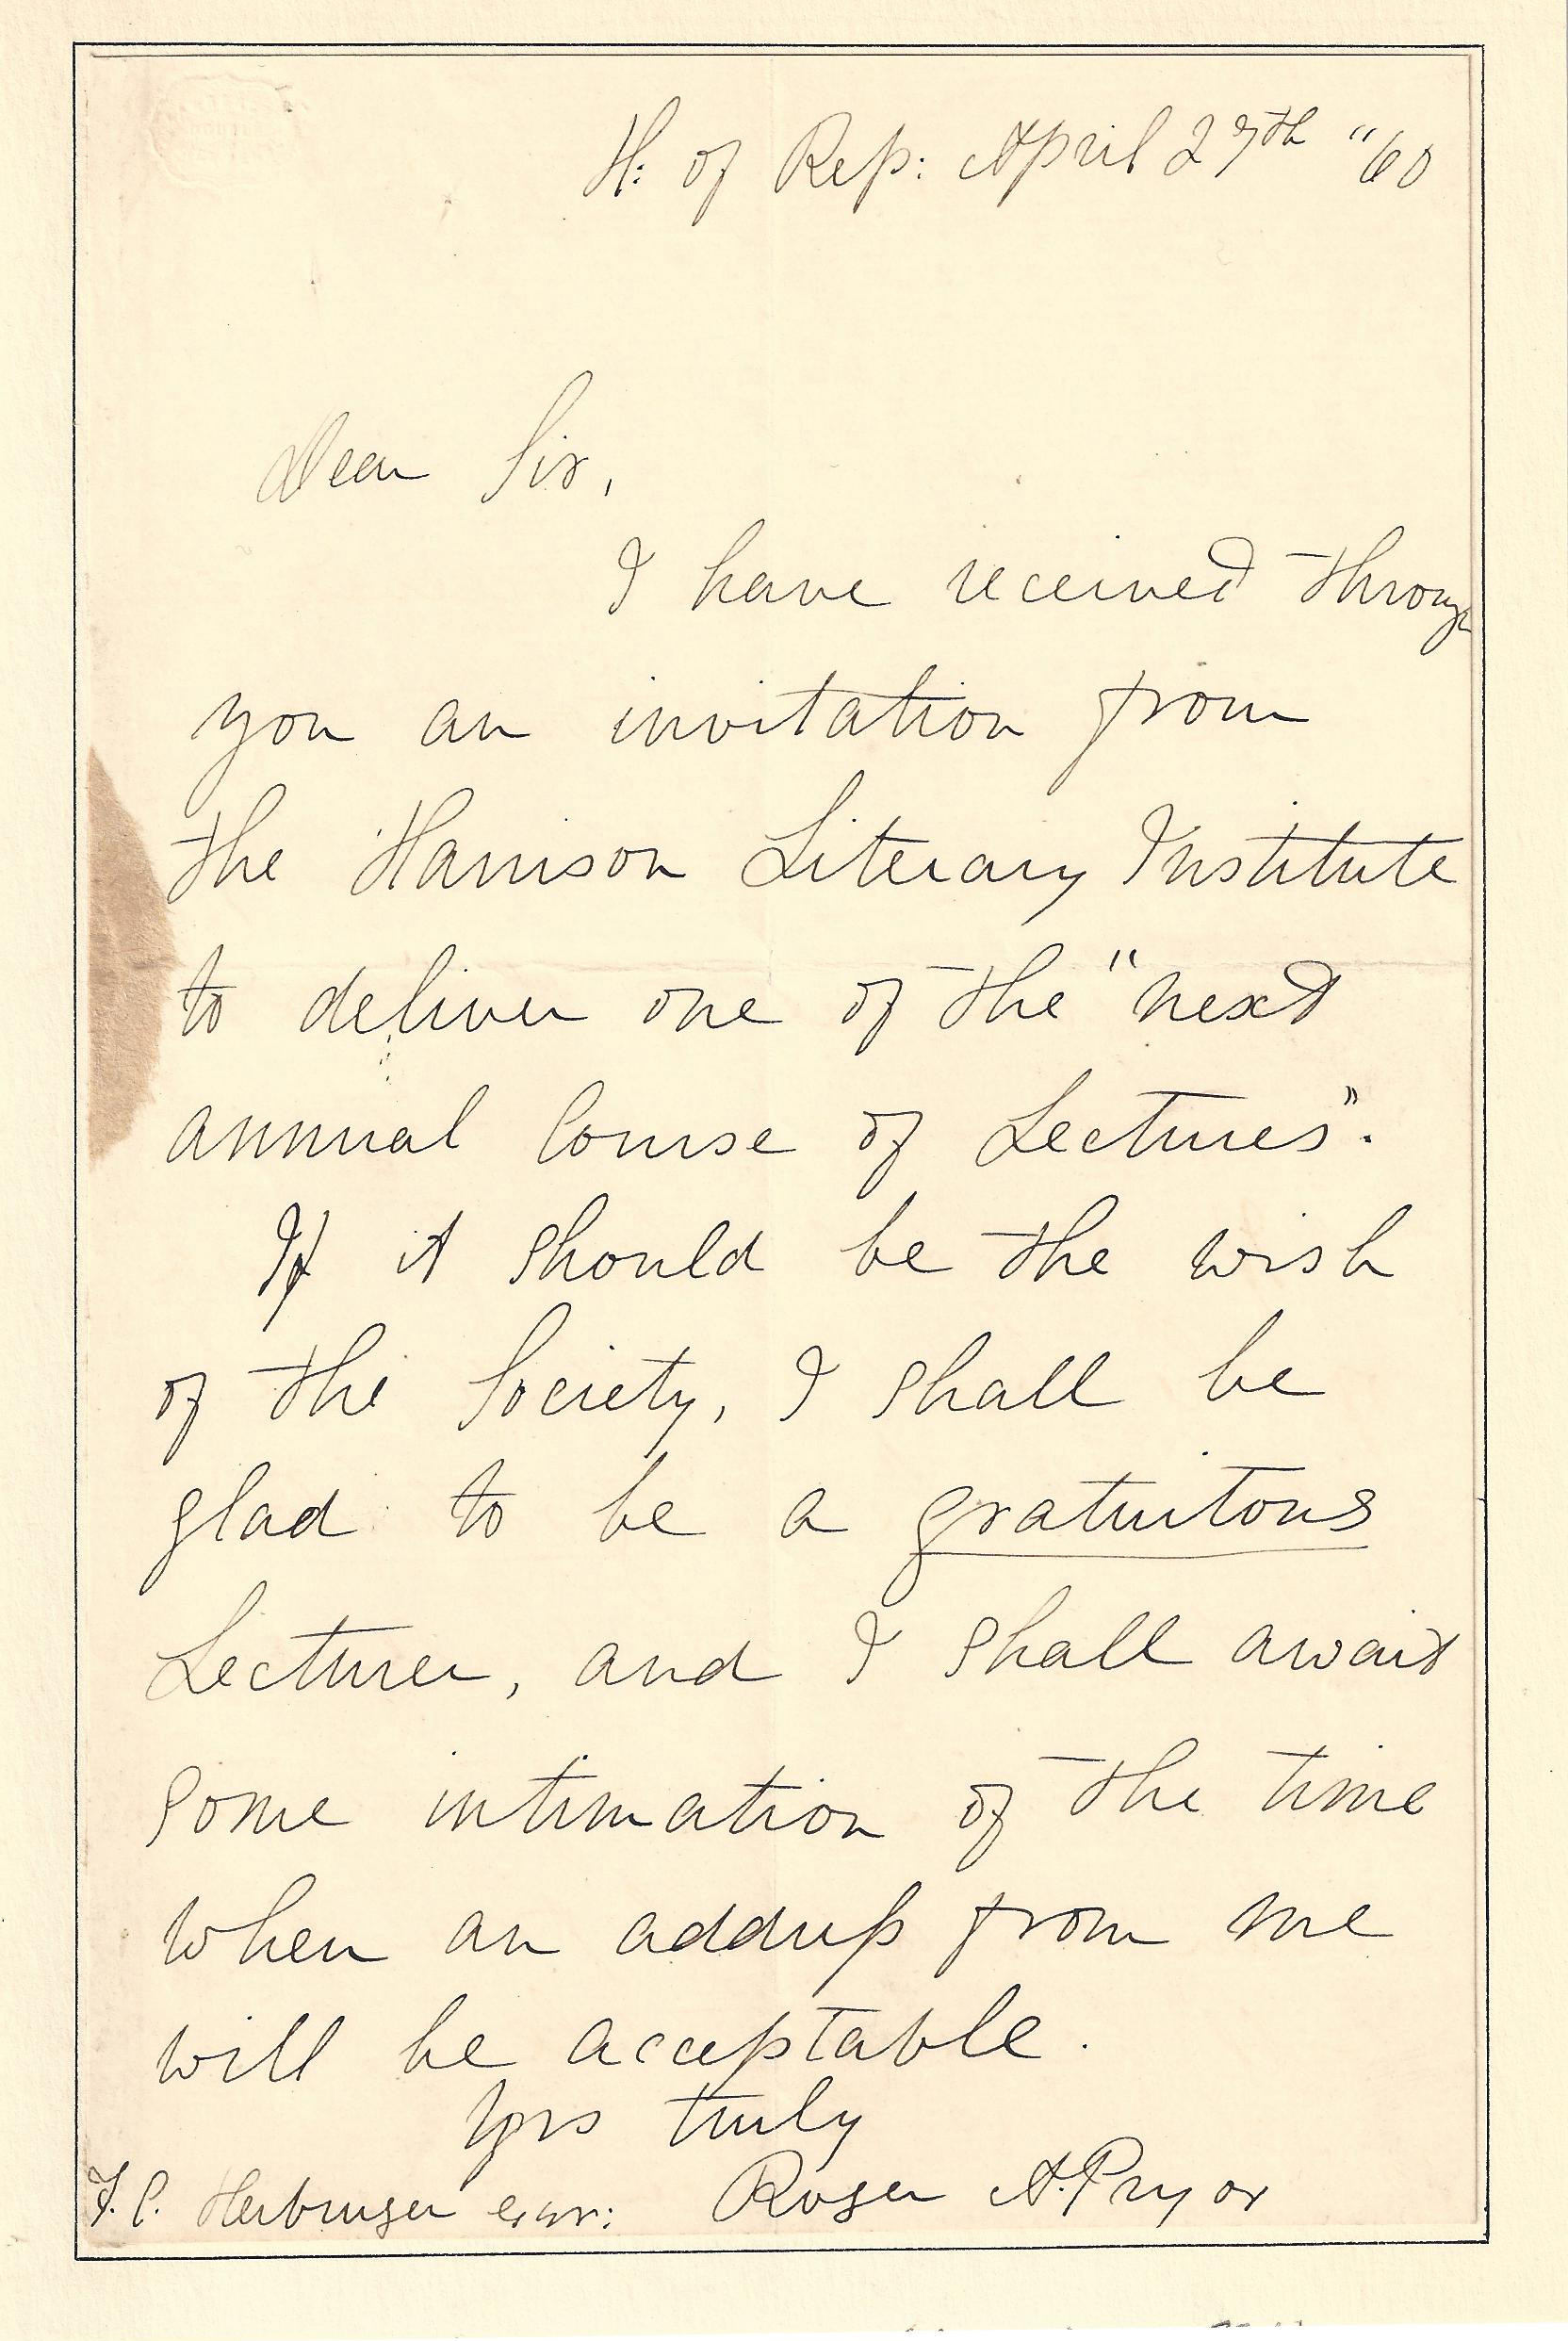 H: of Rep: April 27th "60
Dear Sir,
I have received through
you an invitation from
the Harrison Literary Institute
to deliver one of the "next
annual Course of Lectures".
If it should be the wish
of the Society, I shall be
glad to be a gratuitous
Lecturer, and I shall await
some intimation of the time
when an address from me
will be acceptable.
Yrs truly
Roger A. Pryor